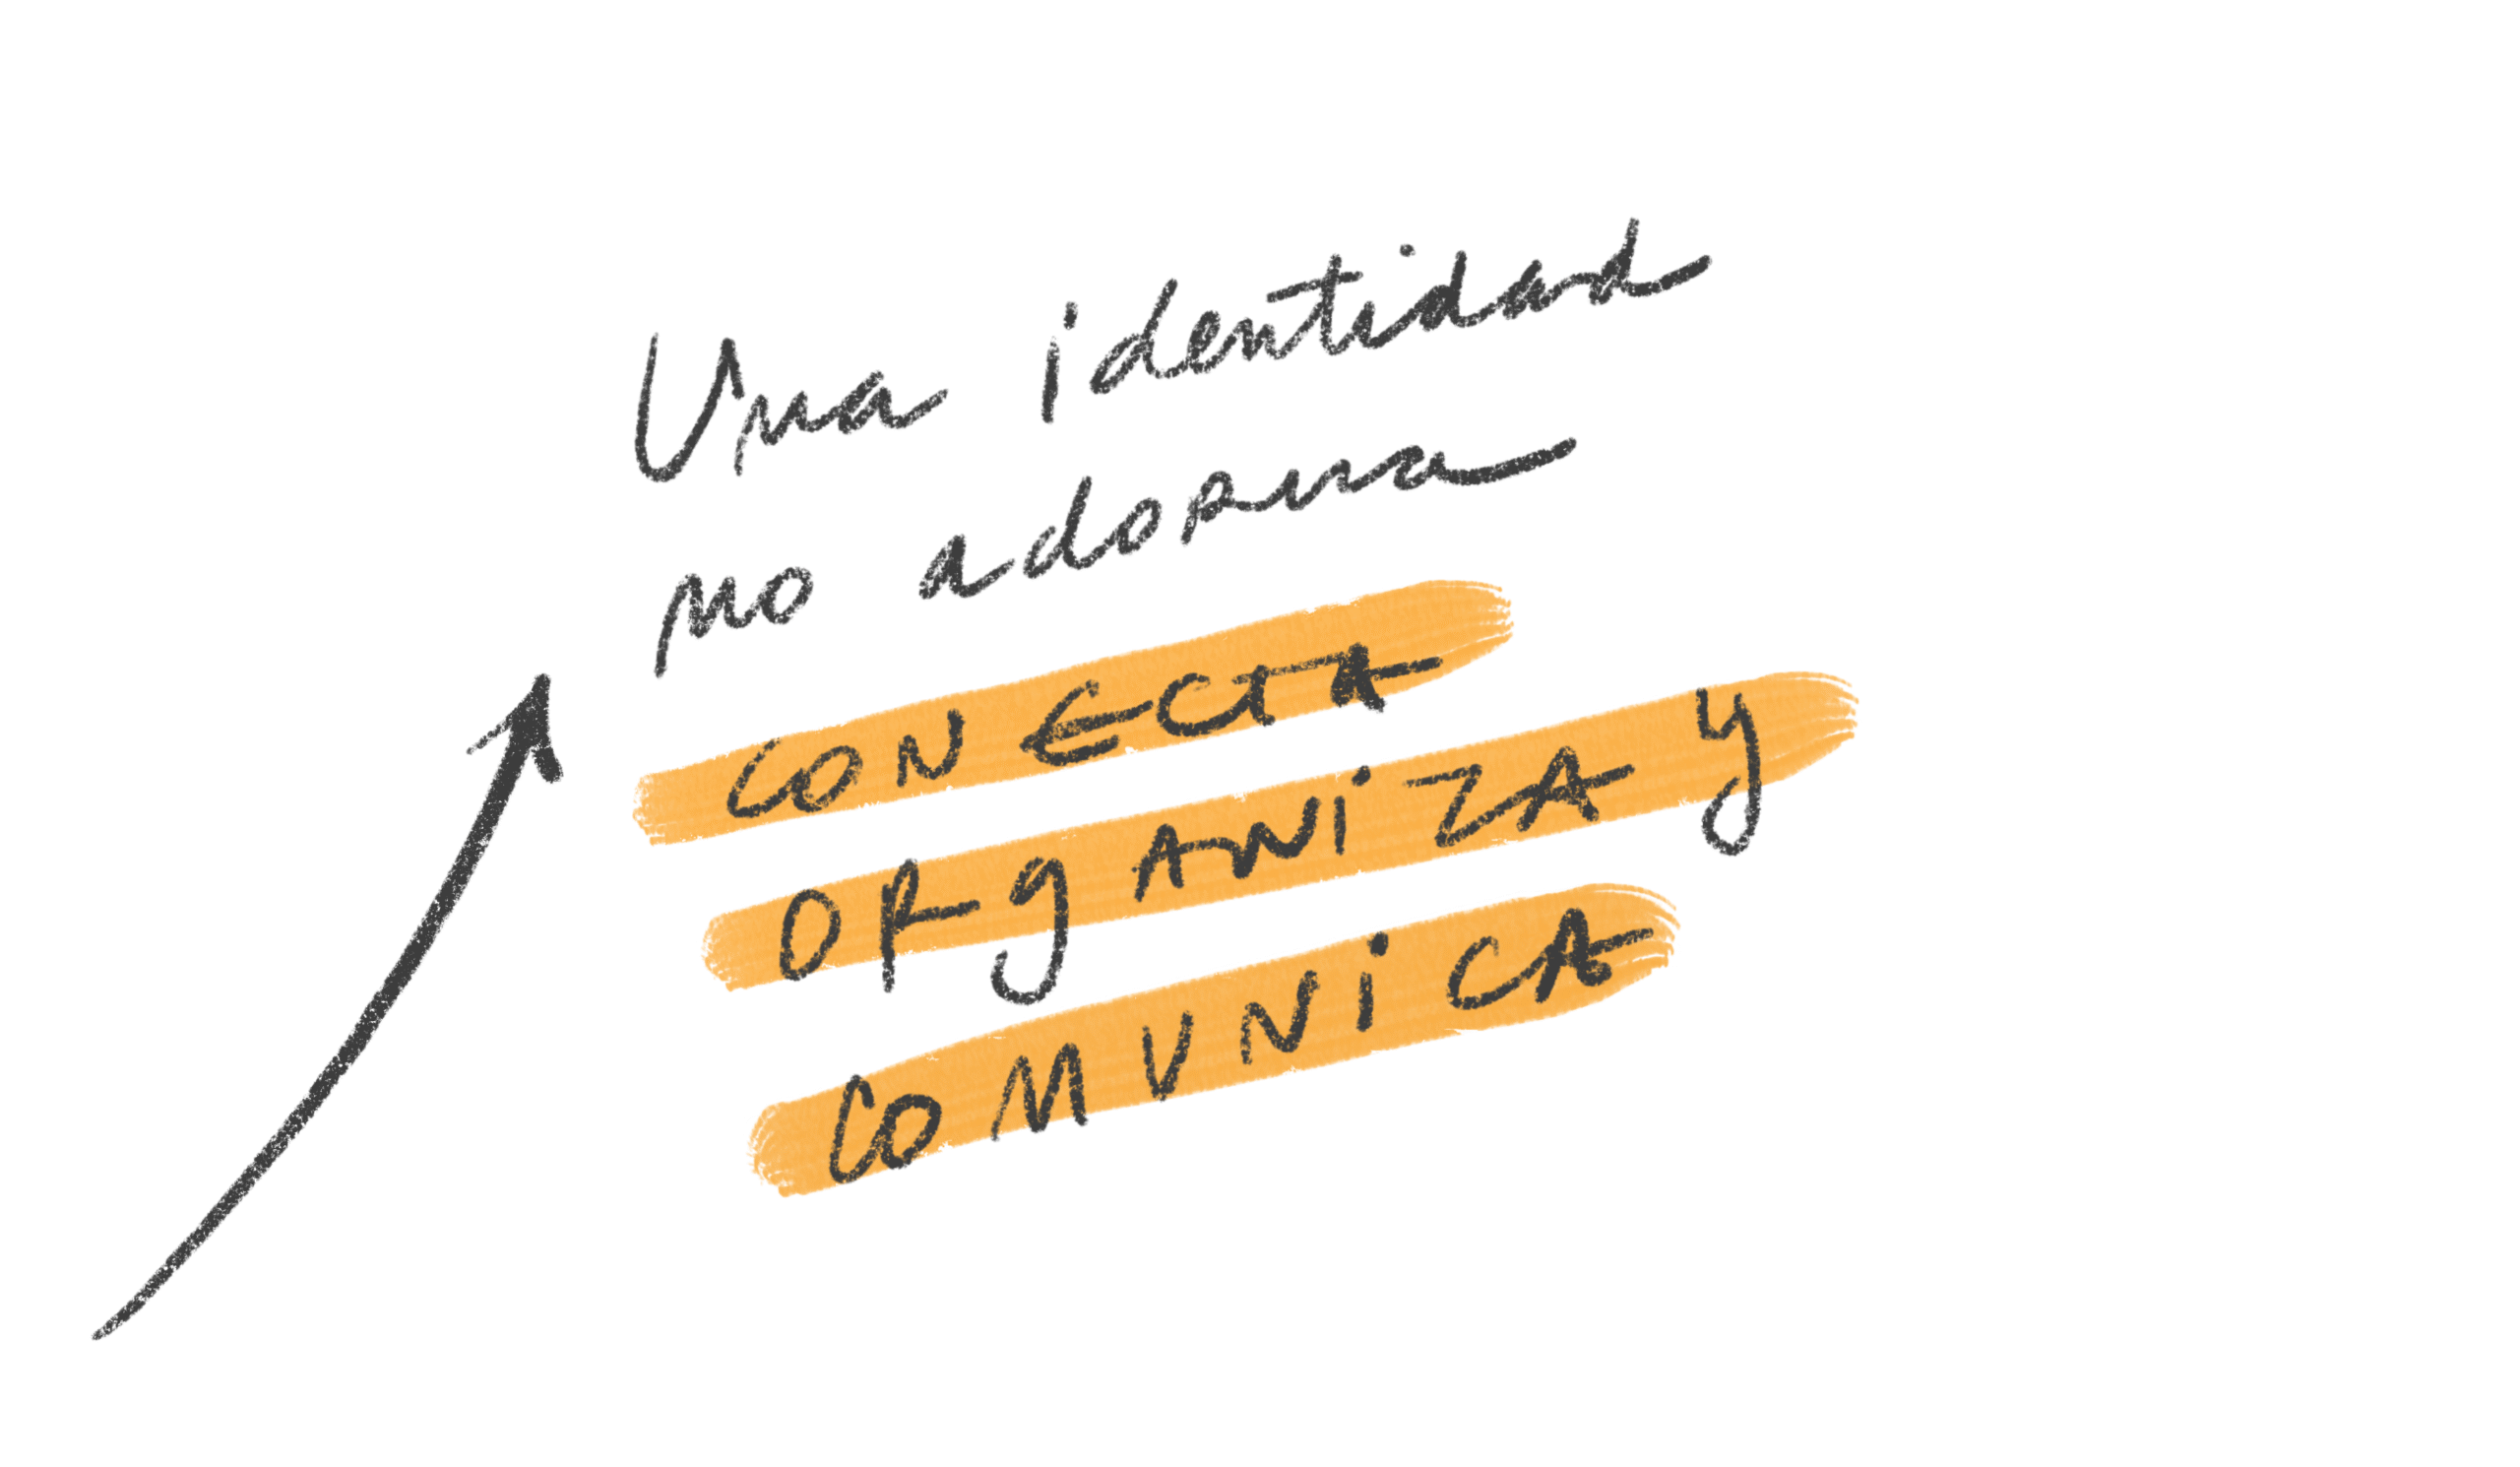 Una identidad
no adorna
CONECTA
ORgANiZA y
COMUNiCA